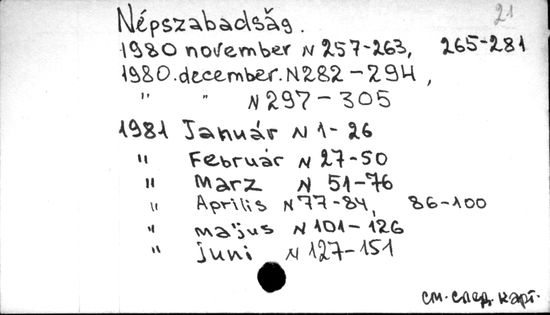 21
Népszabadság.
1980 november N 257-263, 265-281
1980. december. N 282 - 294,
" " N 297 - 305
1981 Január N 1 - 26
" Február N 27-50
" Marz N 51-76
" Aprilis N 77-84, 86-100
" május N 101 - 126
" Juni N 127-151
см. след. карт.